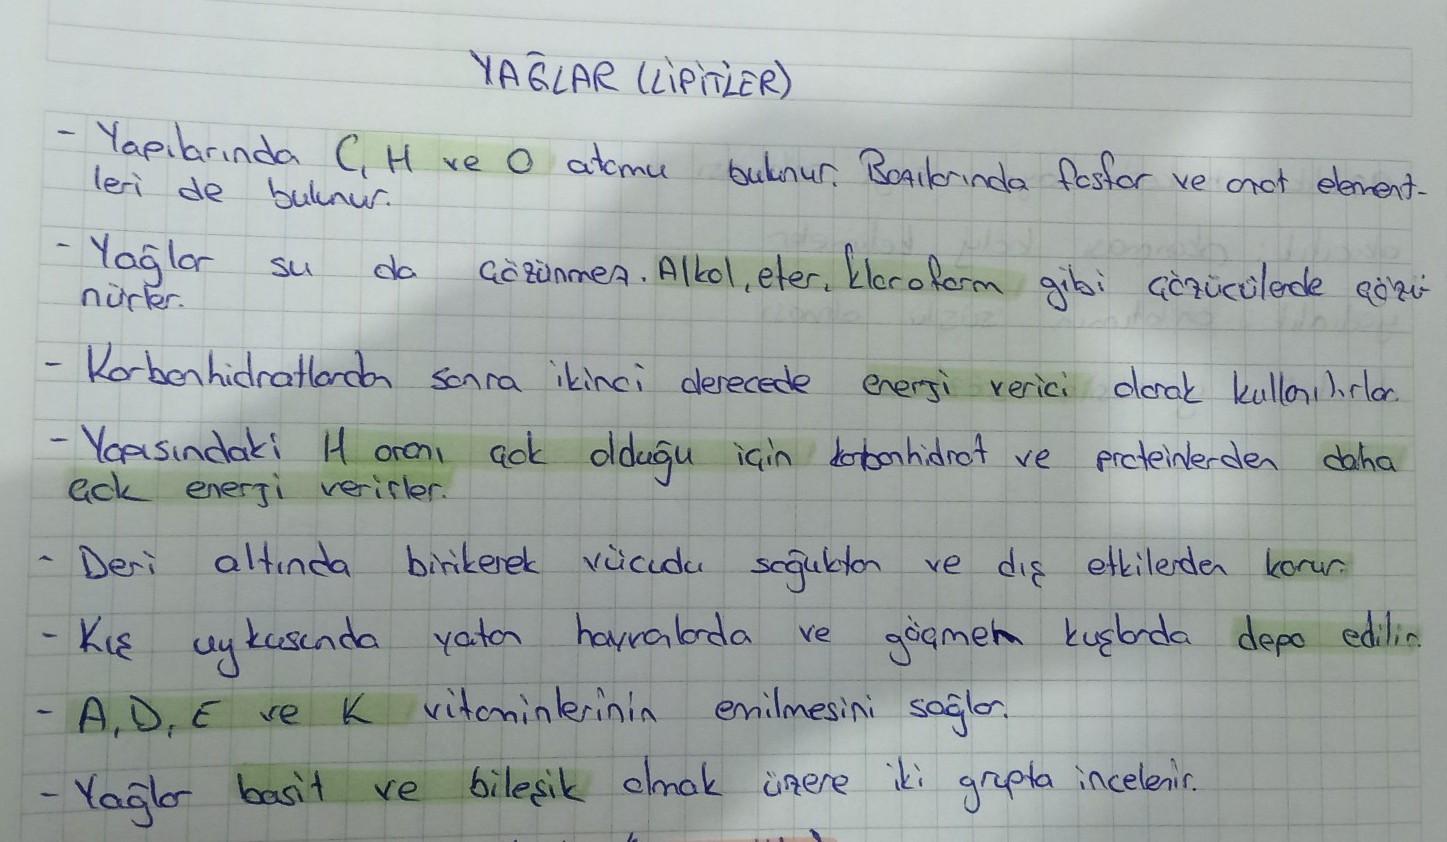 YAĞLAR (LİPİTLER)
- Yapılarında C, H ve O atomu bulunur. Bazılarında fosfor ve azot element-
leri de bulunur.
- Yağlar su da çözünmez. Alkol, eter, kloroform gibi çözücülerde çözü-
nürler.
- Karbonhidratlardan sonra ikinci derecede enerji verici olarak kullanılırlar.
- Yapısındaki H oranı çok olduğu için karbonhidrat ve proteinlerden daha
çok enerji verirler.
- Deri altında birikerek vücudu soğuktan ve dış etkilerden korur.
- Kış uykusunda yatan hayvanlarda ve göçmen kuşlarda depo edilir.
- A, D, E ve K vitaminlerinin emilmesini sağlar.
- Yağlar basit ve bileşik olmak üzere iki grupta incelenir.